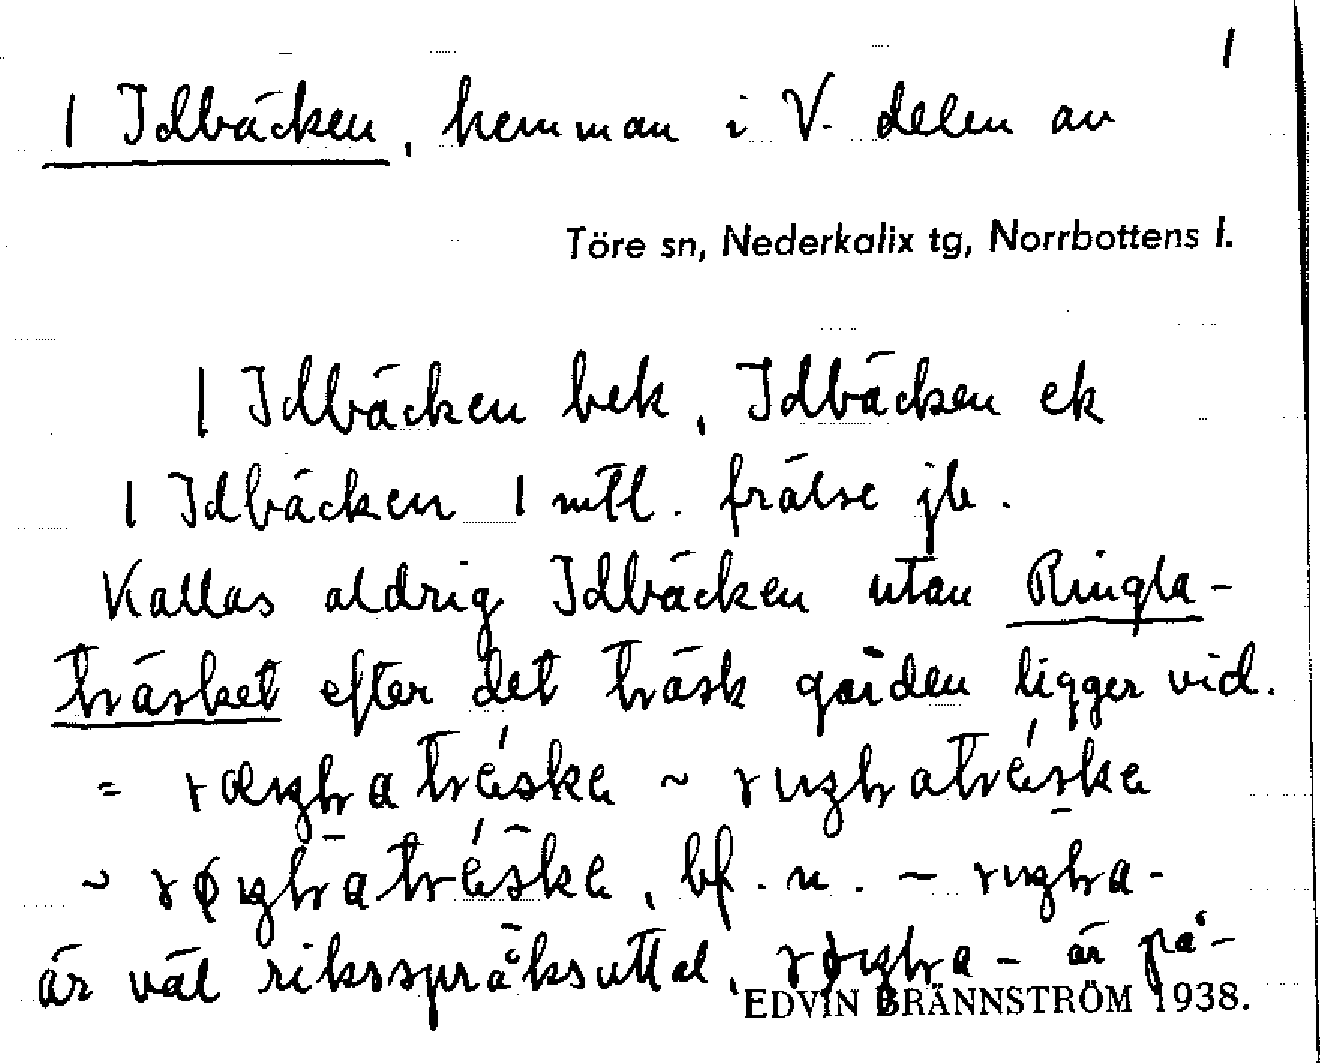 1
1 Idbäcken, hemman i V. delen av
Töre sn, Nederkalix tg, Norrbottens l.
1 Idbäcken bek, Idbäcken ek
1 Idbäcken 1 mtl. frälse jb.
Kallas aldrig Idbäcken utan Ringla-
träsket efter det träsk gården ligger vid.
=
~
~ , bf. n. –
är väl riksspråksuttal, är på-
EDVIN BRÄNNSTRÖM 1938.